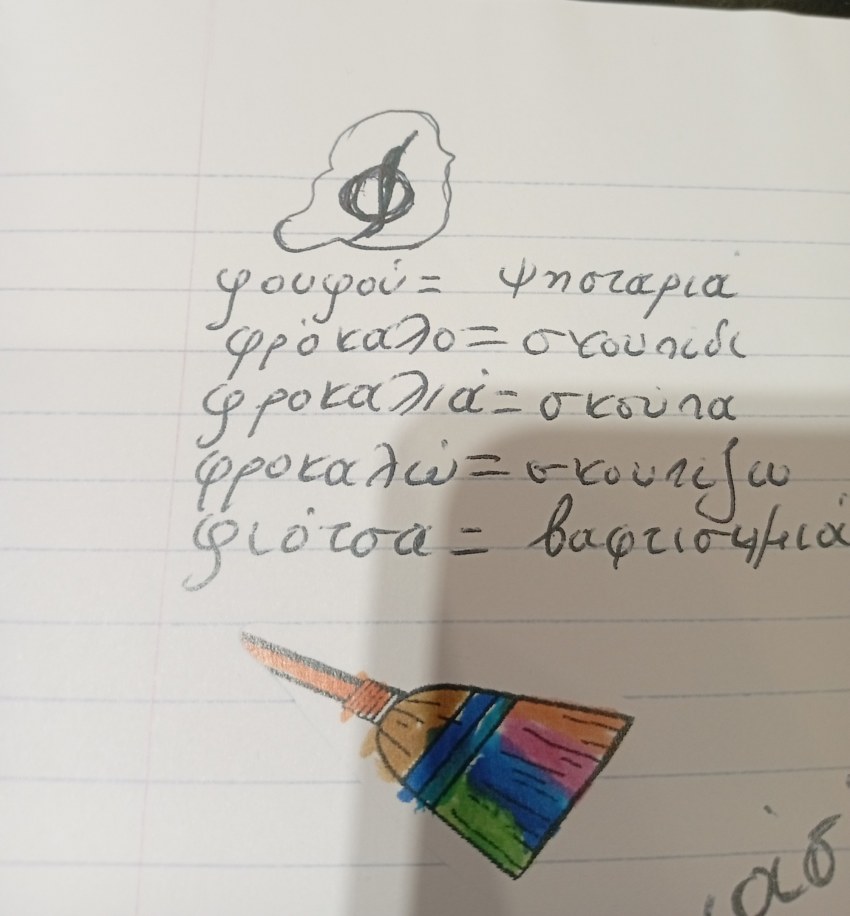 Φ
φουφού = ψησταριά
φρόκαλο = σκουπίδι
φροκαλιά = σκούπα
φροκαλώ = σκουπίζω
φιότσα = βαφτισημιά